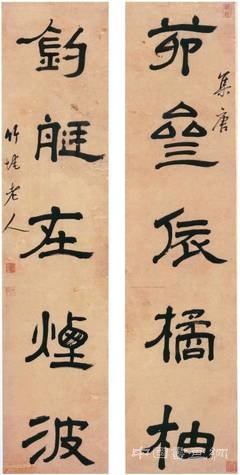 茆依橘柚
集唐
釣艇在煙波
竹垞老人